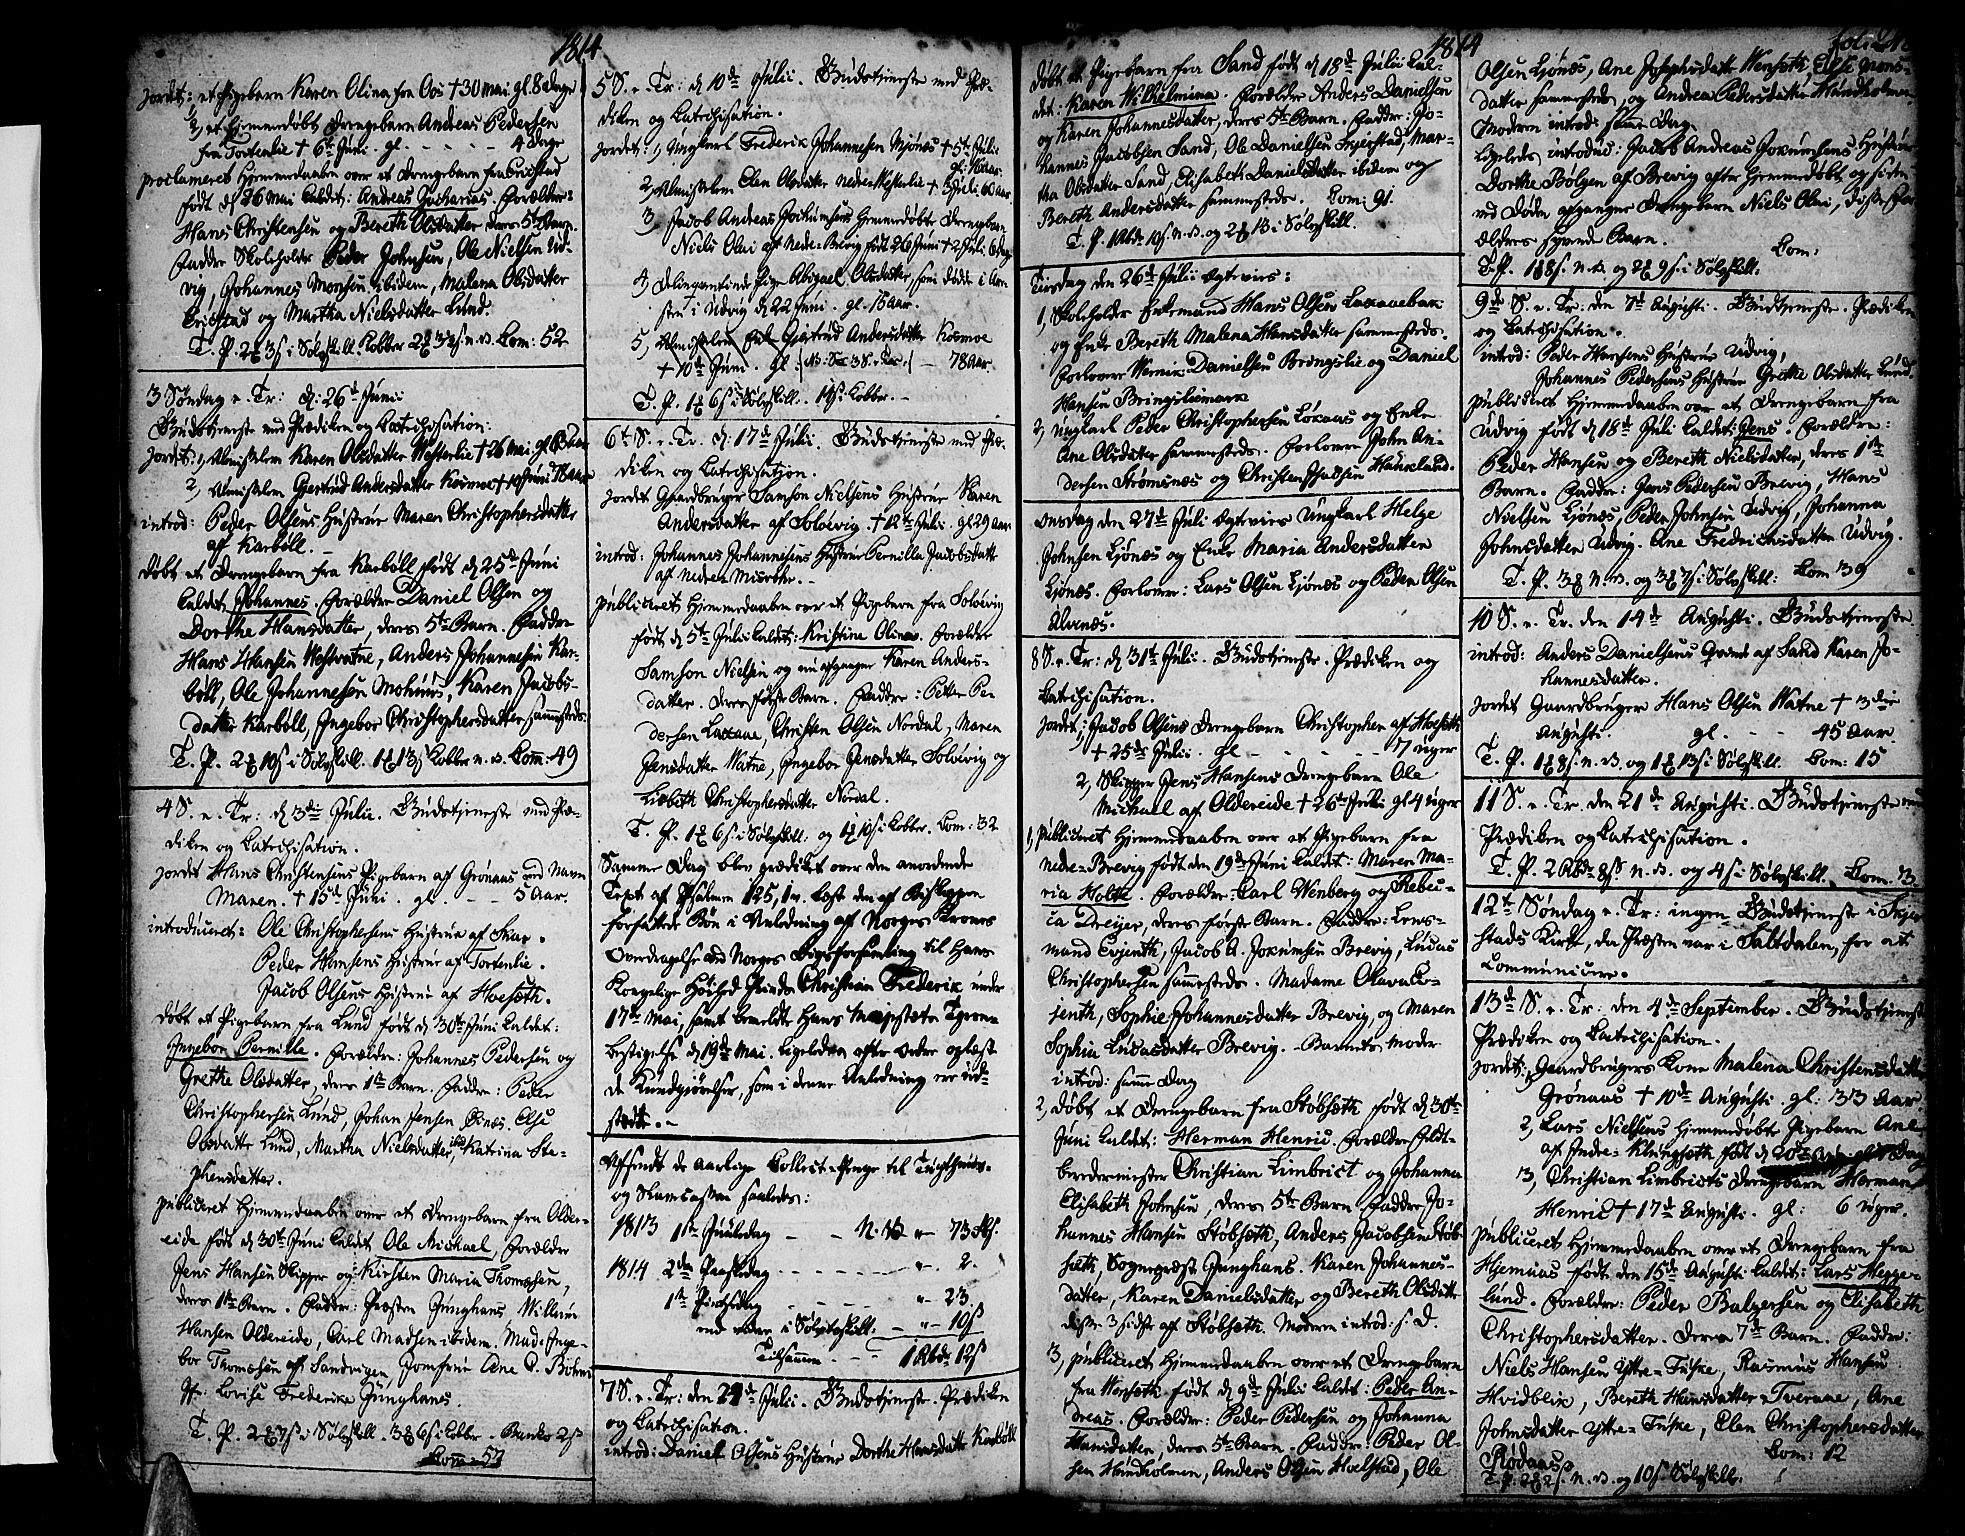 1814
jordet: et Pigebarn Karen Olina fra Oxi † 30 mai gl. 8 Dage
2, et Hjemmedøbt Drengebarn Andreas Pedersen
fra Tortenlie † 6te Juni. gl. - - - 4 Dage
proclameret Hjemmedaaben over et Drengebarn fra
født d 26 mai kaldet: Andreas Zacharias. Forældre:
Hans Christensen og Bereth Olsdatter deres 5te Barn.
Faddre Skoleholder Peder Johnsen, Ole Nielsen Ud-
vig, Johannes Monsen ibidem, Malena Olsdatter
og Martha Nielsdatter Lund.
T. P. 2 ₰ 3 s i Sølvskill. Kobber 2 ₰ 3 s. n. v. Com: 52
3 Søndag e. Tr: d: 26de Juni:
Gudstjeneste med Prædiken og Catechisation:
jordet: 1, Almisselem Karen Olsdatter Westerlie † 26 mai gl.
2, Almisselem Gjertrud Andersdatter Kosmoe † 10 Juni 78 aar
introd: Peder Olsens Hustrue Maren Christophersdatter
af Karbøll. -
døbt et Drengebarn fra Karbøll født d 25de Juni
kaldet Johannes. Forældre Daniel Olsen og
Dorthe Hansdatter, deres 5te Barn. Faddre
Hans Hansen Westvatne, Anders Johannesen Kar-
bøll, Ole Johannesen Mohuus, Karen Jacobs-
datter Karbøll, Ingebor Christophersdatter sammesteds.
T. P. 2 ₰ 10 s i Sølvskill. 1 ₰ 13 s Kobber n. v. Com: 49
4 S. e. Tr: d 3die Julii. Gudstjeneste med Præ-
diken og Catechisation.
jordet Hans Christensens Pigebarn af Grønaas ved Navn
Maren. † 15de Juni. gl. - - 5 Aar.
introduceret: Ole Christophersens Hustrue af Skar.
Peder Hansens Hustrue af Tortenlie.
Jacob Olsens Hustrue af Hoesøth.
døbt et Pigebarn fra Lund født d 30te Juni kaldet:
Ingebor Pernille. Forældre: Johannes Pedersen og
Grethe Olsdatter, deres 1ste Barn. Faddre: Peder
Christophersen Lund, Johan Jensen Ørnes, Else
Olsdatter Lund, Martha Nielsdatter ibid, Katrina Ste-
phensdatter.
publiceret Hjemmedaaben over et Drengebarn fra Older-
eide født d 30te Juni kaldet Ole Michael. Forældre
Jens Hansen Skipper og Kirsten Maria Thomesen,
deres 1ste Barn. Faddre: Præsten Junghans, Willum
Hansen Oldereide, Carl Madsen ibidem. Mad: Inge-
bor Thomesen af Sandvigen, Jomfrue Ane P. Bøhm
Jfr: Lovise Frederike Junghans.
T. P. 2 ₰ 7 s i Sølvskill. 3 ₰ 6 s i Kobber. Banko 2 s
Com = 57
5 S. e. Tr: d 10de Julii. Gudstjeneste med Præ-
diken og Catechisation.
jordet: 1, Ungkarl Frederik Johannesen Misnes † 5te Julii
gl:
2, Almisselem Elen Olsdatter nedre Westerlie † 3 Juli 60 aar
3, Jacob Andreas Jochumsens Hjemmedøbt Drengebarn
Niels Olai af Nedre-Brevig født 26 Juni † 2 Juli 6 Dage
4, Delinqventinde Pige Abigael Olsdatter, som døde i Ar-
sten i Udvig d 22 Juni. gl. 18 aar.
5, Almisselem Enke Gjertrud Andersdatter Kosmoe
† 10de Juni. gl. (NB. See 3 S. e. Tr.) - 78 Aar.
T. P. 1 ₰ 6 s i Sølvskill. 11 s: Kobber. -
6te S. e. Tr. d: 17de Julii. Gudstjeneste med Præ-
diken og Catechisation.
jordet Gaardbruger Samson Nielsens Hustrue Karen
Andersdatter af Soløevig. † 12te Julii. gl. 29 aar
introd: Johannes Johannesens Hustrue Pernilla Jacobsdatt
af nedre Misvær. -
publiceret Hjemmedaaben over et Pigebarn fra Soløevig
født d 5te Julii kaldet: Kristine Olina. Forældre
Samson Nielsen og nu afgangne Karen Anders-
datter. deres første Barn. Faddre: Petter Pe-
dersen Laxaae, Christen Olsen Nordal, Maren
Jensdatter Watne, Ingebor Jensdatter Soløevig og
Lisbeth Christophersdatter Nordal.
T. P. 1 ₰ 6 s i Sølvskill. og 1 ₰ 10 s i Kobber. Com: 32
Samme Dag blev prædiket over den anordnede
Text af Psalmen 125, 1 v. læst den af Biskoppen
forfattede Bøn i Anledning af Norges Krones
Overdragelse ved Norges Rigsforsamling til Hans
Kongelige Høihed Prinds Christian Frederik under
17de Mai, samt bemeldte Hans Majestæts Tron-
bestigelse d 19de mai. ligeledes efter Ordre oplæst
de Kundgjørelser, som i denne Anledning ere ud-
stædte. -
Afsendt de aarlige Collect-Penge til Tugthuus-
og Slavekassen saaledes:
1813 1ste Juuledag - - N. V. " 73 Rbs.
1814 2den Paaskedag - - - - " 2.
1ste Pintsedag - - - - " 23
ved siden i Sølvskill. - " - 10 s
Tilsammen - - - 1 Rbd. 12 s
7 S. e. Tr: den 24de Julii. Gudstjeneste. Prædiken
og Catechisation.
introd: Daniel Olsens Hustrue Dorthe Hansdatter Karbøll
1814
døbt et Pigebarn fra Sand født d 18de Julii kal-
det: Karen Wilhelmina. Forældre Anders Danielsen
og Karen Johannesdatter, deres 5te Barn. Faddre: Jo-
hannes Jacobsen Sand, Ole Danielsen Skjerstad, Mar-
tha Olsdatter Sand, Elisabeth Danielsdatter ibidem og
Bereth Andersdatter sammesteds. Com: 91.
T. P. 1 Rbd. 10 s. n. v. og 2 ₰ 13 s. Sølvskill.
Tirsdag den 26de Julii Egtevies:
1, Skoleholder Enkemand Hans Olsen Laxaaebak
og Enke Bereth Malena Hansdatter sammesteds.
Forlovere Werner Danielsen Bringslie og Daniel
Hansen Bringsliemark
2, Ungkarl Peder Christophersen Løxaas og Enke
Ane Olsdatter sammesteds. Forlovere John An-
dersen Strømsnæs og Christen Paulsen Haukeland.
Onsdag den 27de Juli Egtevies Ungkarl Helge
Johnsen Ljønæs og Enke Maria Andersdatter
Ljønæs. Forlovere: Lars Olsen Ljønæs og Peder Olsen
Alvenæs.
8 S. e. Tr: d 31te Julii. Gudstjeneste. Prædiken og
Catechisation.
jordet: 1, Jacob Olsens Drengebarn Christopher af Hoesøth
† 25de Julii. gl - - - 7 uger
2, Skipper Jens Hansens Drengebarn Ole
Michael af Oldereide † 26te Juli gl 4 uger
1, publiceret Hjemmedaaben over et Pigebarn fra
Nedre-Brevig født den 19de Juni kaldet: Maren Ma-
ria Holte. Forældre: Carl Wenberg og Rebec-
ca Dreyer, deres første Barn. Faddre: Lens-
mand Evjenth, Jacob A. Jochumsen Brevig, Lucas
Christophersen sammesteds. Madame Olava Ev-
jenth, Sophie Johannesdatter Brevig, og Maren
Sophia Lucasdatter Brevig. - Barnets Moder
introd: samme Dag
2, døbt et Drengebarn fra Støbseth født d 30te
Juni kaldet: Herman Henric. Forældre Feldt-
beredermester Christian Limbrict og Johanna
Elisabeth Johnsen, deres 5te Barn. Faddre Jo-
hannes Hansen Støbseth, Anders Jacobsen Støb-
seth, Sognepræst Junghans. Karen Johannes-
datter, Karen Danielsdatter og Bereth Olsdatter
disse 3 sidste af Støbseth. Moderen introd: s. D.
3, publiceret Hjemmedaaben over et Drengebarn
fra Wenseth født d 9de Julii kaldet: Peder An-
dreas. Forældre: Peder Pedersen og Johanna
Hansdatter, deres 5te Barn. Faddre: Peder Ol-
sen Hundholmen, Anders Olsen Hoelstad, Ole
Fol:
Olsen Ljønæs, Ane Josephsdatter Wenseth, Else Mons-
datter sammesteds, og Andrea Pedersdatter Hundholmen.
Moderen introd: samme Dag.
ligeledes introduc: Jacob Andreas Jochumsens Hustrue
Dorthe Bølgen af Brevig efter Hjemmedøbt og siden
ved Døden afgangne Drengebarn Niels Olai, disse For-
ældres syvende Barn. Com:
T. P. 1 ₰ 8 s. n. v. og 2 ₰ 9 s i Sølvskill.
9de S. e. Tr: den 7de Augusti. Gudstjeneste. Prædiken
og Catechisation.
introd: Peder Hansens Hustrue Udvig,
Johannes Pedersens Hustrue Grethe Olsdatter Lund.
publiceret Hjemmedaaben over et Drengebarn fra
Udvig født d 18de Juli kaldet: Jens. Forældre:
Peder Hansen og Bereth Nielsdatter, deres 1ste
Barn. Faddre: Jens Pedersen Brevig, Hans
Nielsen Ljønæs, Peder Johnsen Udvig, Johanna
Johnsdatter Udvig. Ane Fredrichsdatter Udvig.
T. P. 3 ₰ n. v. og 3 ₰ 7 s i Sølvskill: Com 39
10 S. e. Tr. den 14de Augusti. Gudstjeneste
introd: Anders Danielsens Qvinde af Sand Karen Jo-
hannesdatter.
jordet Gaardbruger Hans Olsen Watne † 3die
Augusti. gl. - - 45 Aar.
T. P. 1 ₰ 8 s. n. v. og 1 ₰ 13 s i Sølvskill. Com: 15
11 S. e. Tr. den 21de Augusti. Gudstjeneste med
Prædiken og Catechisation.
T. P. 2 Rbd. 8 s n. v. og 4 s i Sølvskill. Com. 3.
12te Søndag e. Tr: ingen Gudstjeneste i Skjer-
stads Kirke, da Præsten var i Saltdalen, for at
Communicere.
13de S. e. Tr: den 4de September. Gudstjeneste
Prædiken og Catechisation.
jordet: 1, Gaardbrugers Kone Malena Christensdatter
Grønaas † 10de Augusti. gl. 33 Aar.
2, Lars Nielsens Hjemmedøbte Pigebarn Ane
af Indre-Klungseth født d 20de
3, Christian Limbricts Drengebarn Herman
Henric † 17de Augusti. gl: 6 uger.
publiceret Hjemmedaaben over et Drengebarn fra
Hjemaas født den 15de Augusti kaldet: Lars Hegge-
lund. Forældre: Peder Balzersen og Elisabeth
Christophersdatter. Deres 7de Barn. Faddre:
Niels Hansen Ytre-Fuske, Rasmus Hansen
Hvidblik, Bereth Hansdatter Tveraae, Ane
Johnsdatter Ytre-Fuske, Elen Christophersdatter
Rødaas. Com: 12
T. P. 2 ₰ 2 s. n. v. og 10 s. Sølvskill.